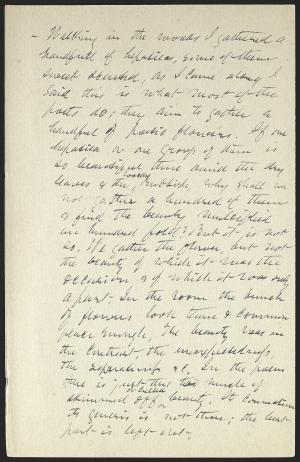 - Walking in the woods I gathered a
handful of hepaticas, some of them
sweet scented, as I came along I
said this is what most of the
poets do; they aim to gather a
handful of poetic flowers. If one
hepatica or one group of them is
so beautiful there amid the dry
leaves & the woodsy rubbish, why shall we
not gather a hundred of them
& find the beauty multiplied
an hundred fold? But it is not
so. We gather the flower, but not
the beauty of which it was the
occasion & of which it was only
a part. In the room the bunch
of flowers look tame & common
place enough, The beauty was in
the contrast, the unexpectedness,
the surroundings &c. In the poem
there is just this much of
skimmed off beauty. Its connections
its genesis is not there; the best
part is left out.